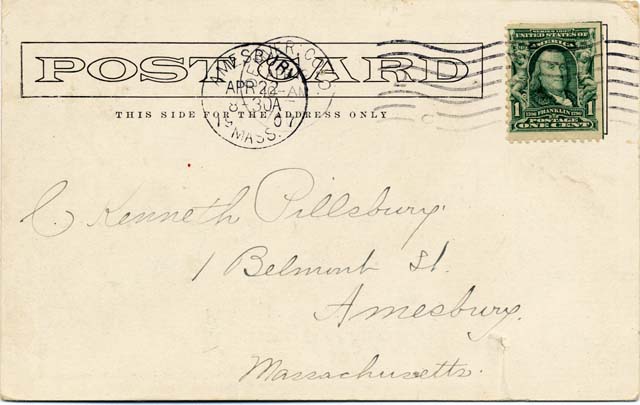 POST CARD
THIS SIDE FOR THE ADDRESS ONLY
AMESBURY
APR 22
8-30A
1907
MASS.
SERIES 1902
UNITED STATES OF
AMERICA
1 FRANKLIN 1
POSTAGE
ONE CENT
C. Kenneth Pillsbury.
1 Belmont St.
Amesbury.
Massachusetts.